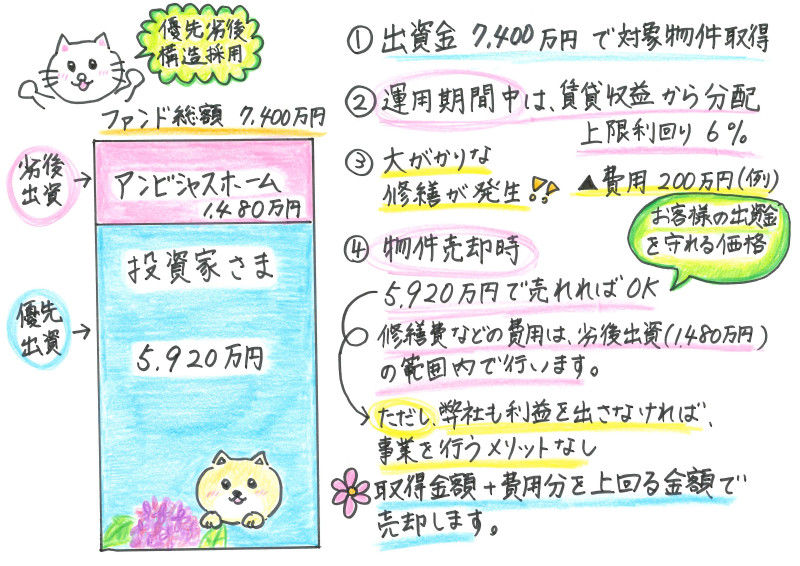 優先劣後
構造採用
ファンド総額 7,400万円
劣後
出資
アンビシャスホーム
1,480万円
優先
出資
投資家さま
5,920万円
① 出資金 7,400万円 で対象物件取得
② 運用期間中は、賃貸収益から分配
上限利回り 6%
③ 大がかりな
修繕が発生!!
▲費用 200万円(例)
お客様の出資金
を守れる価格
④ 物件売却時
5,920万円で売れればOK
修繕費などの費用は、劣後出資(1,480万円)
の範囲内で行います。
ただし、弊社も利益を出さなければ、
事業を行うメリットなし
取得金額+費用分を上回る金額で
売却します。